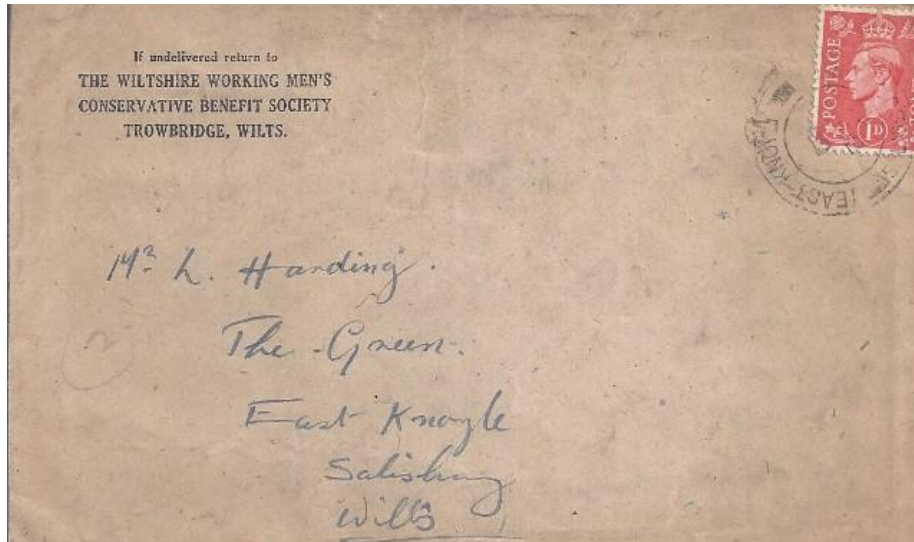 If undelivered return to
THE WILTSHIRE WORKING MEN'S
CONSERVATIVE BENEFIT SOCIETY
TROWBRIDGE, WILTS.
POSTAGE
1D
EAST KNOYLE
Mr L. Harding.
The Green.
East Knoyle
Salisbury
Wilts